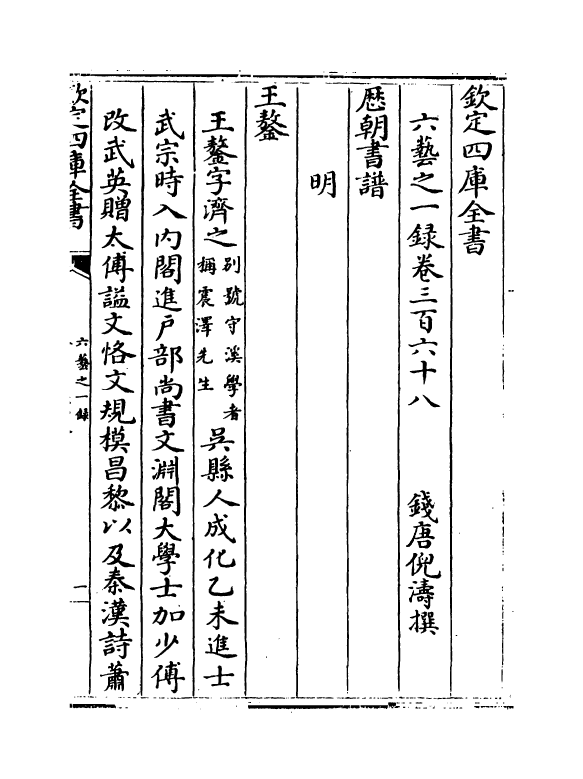 欽定四庫全書
六藝之一録卷三百六十八
錢唐倪濤撰
歴朝書譜
明
王鏊
王鏊字濟之别號守溪學者稱震澤先生吳縣人成化乙未進士
武宗時入内閣進戸部尚書文淵閣大學士加少傅
改武英贈太傅諡文恪文規模昌黎以及秦漢詩蕭
欽定四庫全書
六藝之一録
一